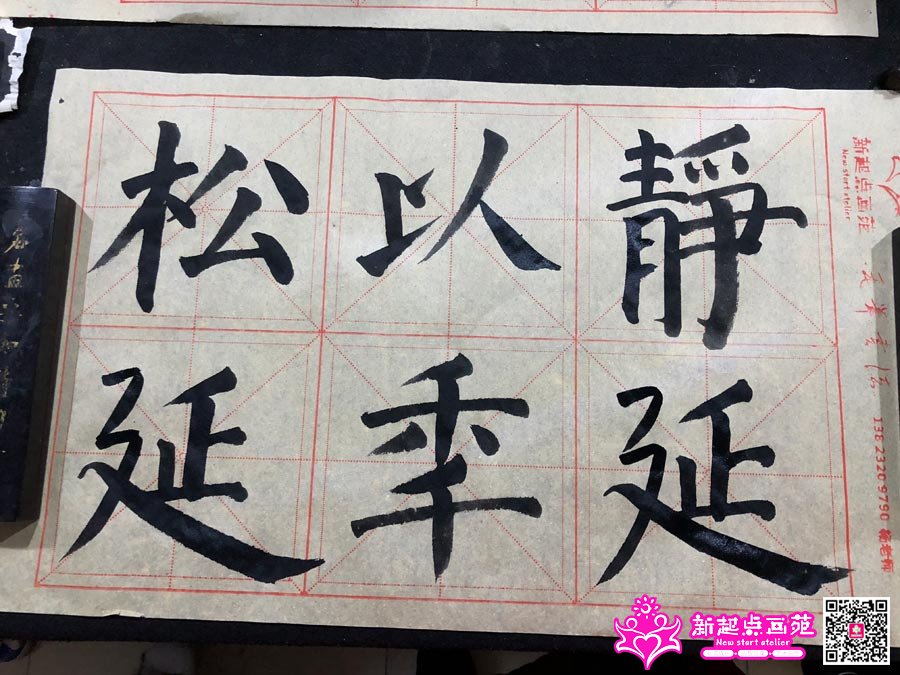 松以靜
延秊延
新起点画苑
New start atelier
13823209790
新起点画苑
New start atelier